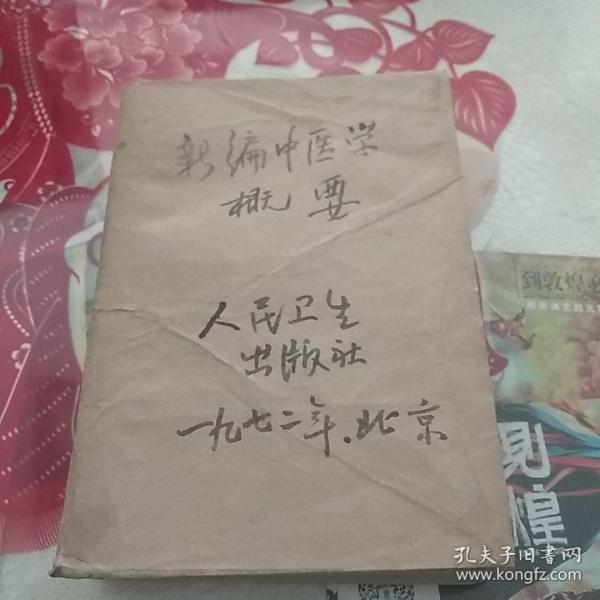 新编中医学
概要
人民卫生
出版社
一九七二年.北京
到敦煌
煌
孔夫子旧书网
www.kongfz.com